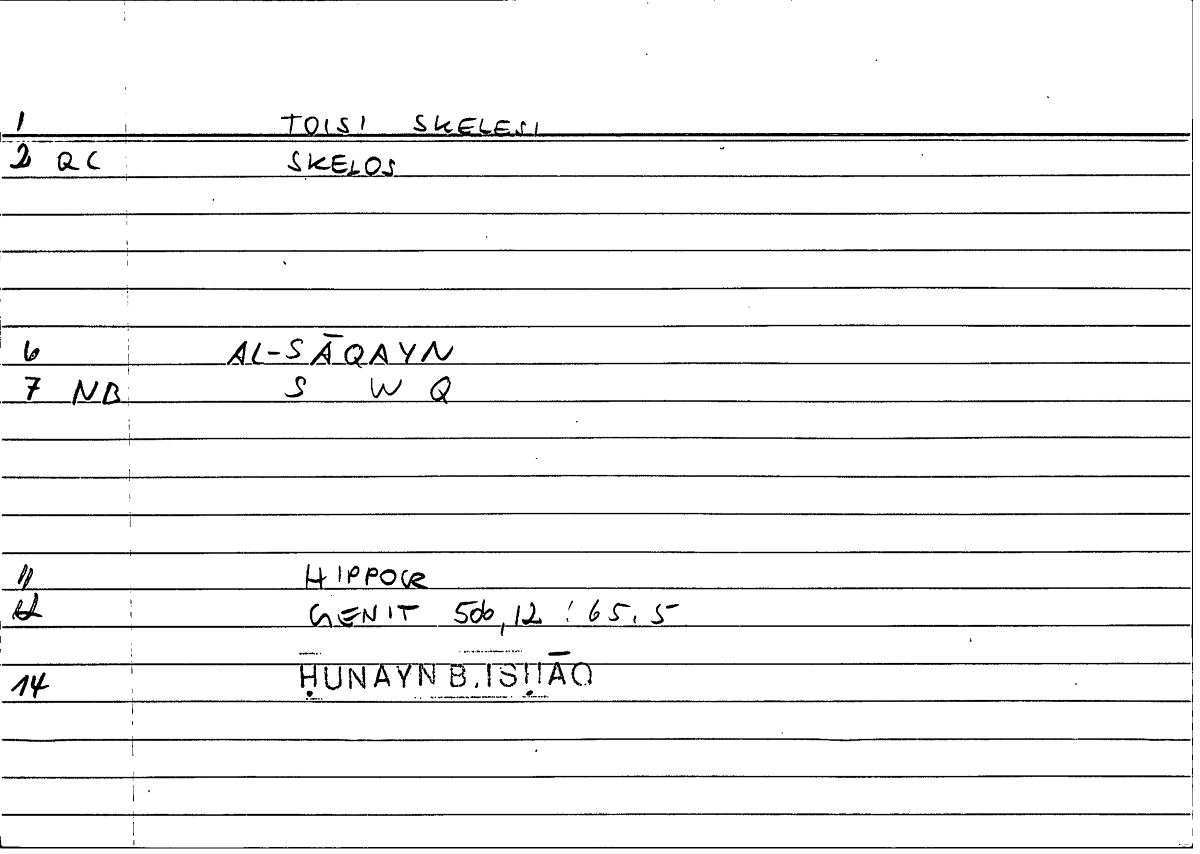 1 TOISI SKELESI
2 QC SKELOS
6 AL-SĀQAYN
7 NB S W Q
11 HIPPOCR
12 GENIT 506,12 : 65.5
14 ḤUNAYN B. ISḤĀQ